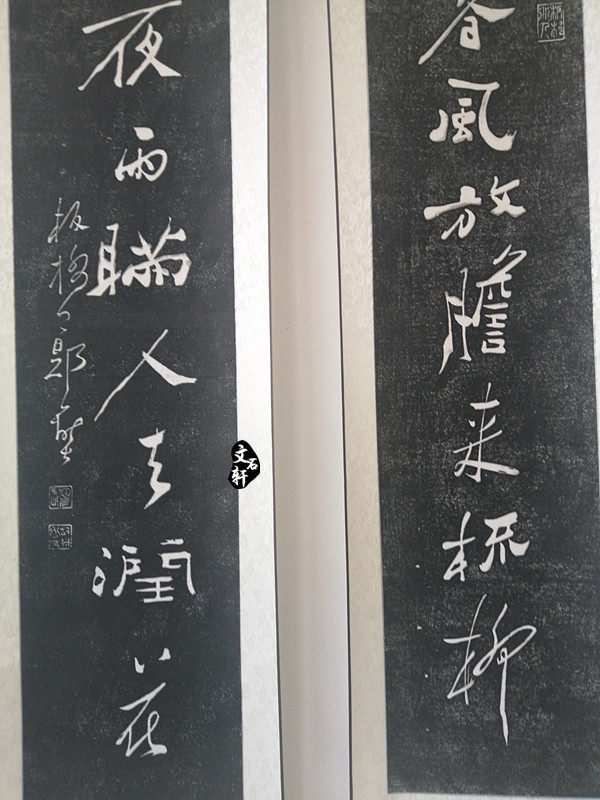 春風放膽来梳柳
夜雨瞞人去潤花
板橋鄭燮
文石轩